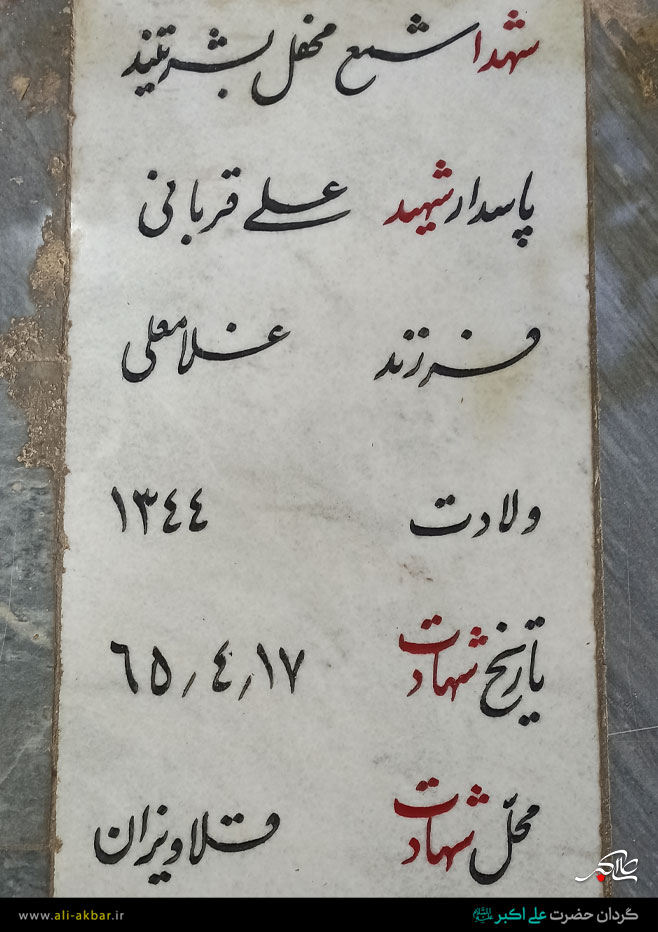 شهدا شمع محفل بشریتند
پاسدار شهید علی قربانی
فرزند غلامعلی
ولادت ١٣٤٤
تاریخ شهادت ١٧/٤/٦٥
محلّ شهادت قلاویزان
علی اکبر
www.ali-akbar.ir گردان حضرت علی اکبر